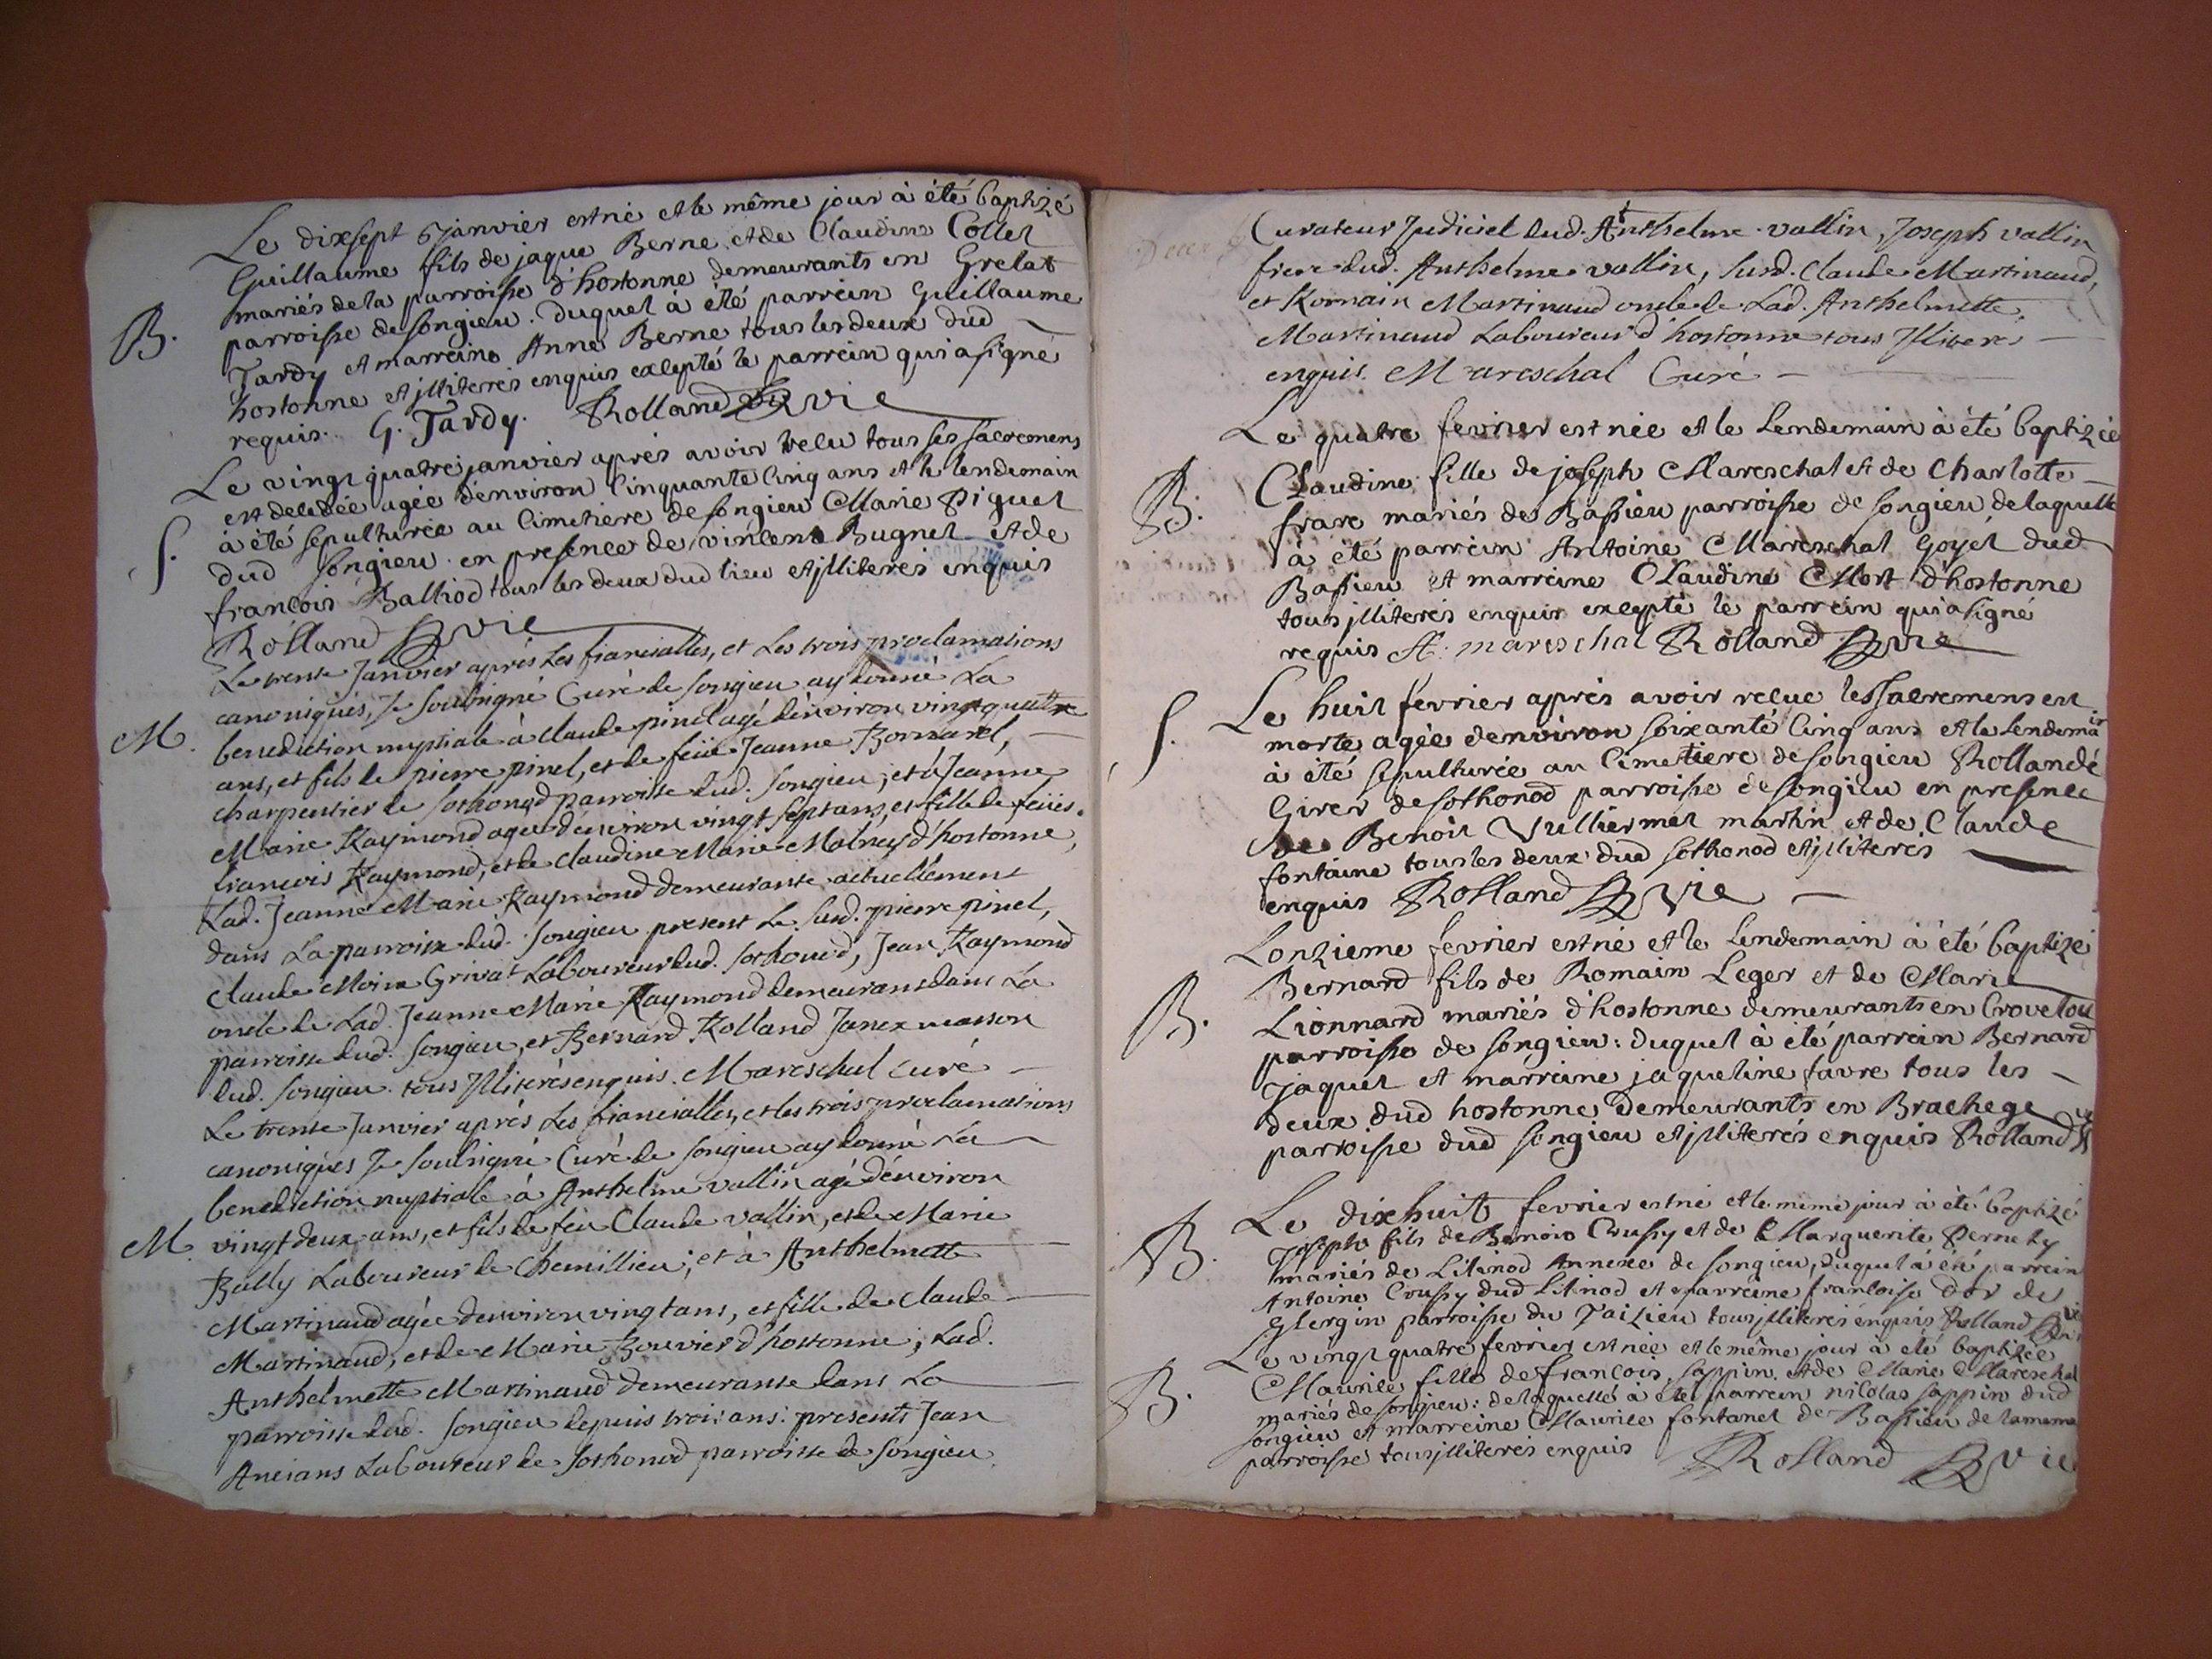 Le dixsept janvier est né et le même jour à été baptizé
Guillaume fils de jaque Berne et de Claudine Collet
mariés de la parroisse d'hostonne demeurants en Grelat
B. parroisse de songieu. duquel à été parrein Guillaume
Tardy et marreine Anne Berne tous les deux dud
hostonne et jlliterés enquis excepté le parrein qui a signé
requis. G. Tardy. Rolland vie
Le vingt quatre janvier aprés avoir reçu tous ses sacremens
est decedée agée d'environ cinquante cinq ans et le lendemain
à été sepulturée au cimetiere de songieu Marie Piguet
S. dud songieu en presence de vincent Bugnet et de
françois Balliod tous les deux dud lieu et jlliterés enquis
Rolland vie
Le trente Janvier aprés les fiancialles, et les trois proclamations
canoniques, Je soubsigné Curé de songieu ay donné la
M. benediction nuptiale à claude pinel agé d'environ vingt quatre
ans, et fils de pierre pinel, et de feüe Jeanne Bonnard,
charpentier de sothonod parroisse dud. songieu; et à Jeanne
Marie Raymond agée d'environ vingt sept ans, et fille de feüs
francois Raymond, et de claudine Marie Molney d'hostonne,
Lad. Jeanne Marie Raymond demeurante actuellement
dans la parroisse dud. songieu present le susd. pierre pinel,
claude Moine Grivat Laboureur dud. sothonod, Jean Raymond
oncle de Lad. Jeanne Marie Raymond demeurant dans la
parroisse dud. songieu, et Bernard Rolland Janex masson
dud. songieu. tous Jlliterés enquis. Mareschal Curé
Le trente Janvier aprés les fiancialles, et les trois proclamations
canoniques Je soubsigné Curé de songieu ay donné la
benediction nuptiale à Anthelme vallin agé d'environ
M. vingt deux ans, et fils de feu Claude vallin, et de Marie
Bally Laboureur de Chemillieu; et à Anthelmette
Martinaud agée d'environ vingt ans, et fille de claude
Martinaud, et de Marie Bouvier d'hostonne; Lad.
Anthelmette Martinaud demeurante dans la
parroisse dud. songieu depuis trois ans: presents Jean
Ancians Laboureur de sothonod parroisse de songieu
Curateur Judiciel dud. Anthelme vallin, Joseph vallin
frere dud. Anthelme vallin, susd. Claude Martinaud,
et Romain Martinaud oncle de Lad. Anthelmette
Martinaud Laboureur d'hostonne tous Jlliterés
enquis. Mareschal Curé
Le quatre fevrier est née et le lendemain à été baptizée
B. Claudine fille de joseph Mareschal et de Charlotte
frare mariés de Bassieu parroisse de songieu de laquelle
à été parrein Antoine Mareschal Goyét dud
Bassieu et marreine Claudine Mort d'hostonne
tous jlliterés enquis excepté le parrein qui a signé
requis A. mareschal Rolland vie
Le huit février aprés avoir reçue les sacremens est
S. morte agée denviron soixante cinq ans et le lendemain
à été sepulturée au cimetiere de songieu Rollande
Girer de sothonod parroisse de songieu en presence
de Benoit Vulliermet martin et de Claude
fontaine tous les deux dud sothonod et jlliterés
enquis Rolland vie
Lonzieme fevrier est né et le lendemain à été baptizé
Bernard fils de Romain Leger et de Marie
B. Lionnard mariés d'hostonne demeurants en Crovetou
parroisse de songieu: duquel à été parrein Bernard
jaquet et marreine jaqueline favre tous les
deux dud hostonne demeurants en Brachege
parroisse dud songieu et jlliterés enquis Rolland
Le dixhuit fevrier est né et le même jour à été baptizé
B. Joseph fils de Benoit Crussy et de Marguerite Pernety
mariés de Lilinod Annexe de songieu, duquel à été parrein
Antoine Crussy dud Lilinod et marreine francoise Dor de
Glergin parroisse du Poizieu tous jlliterés enquis Rolland vie
Le vingt quatre fevrier est née et le même jour à été baptizée
B. Maurice fille de françois sappin et de Marie Mareschal
mariés de songieu: de laquelle à été parrein nicolas sappin dud
songieu et marreine Maurice fontanel de Bassieu de la meme
parroisse tous jlliterés enquis Rolland vie